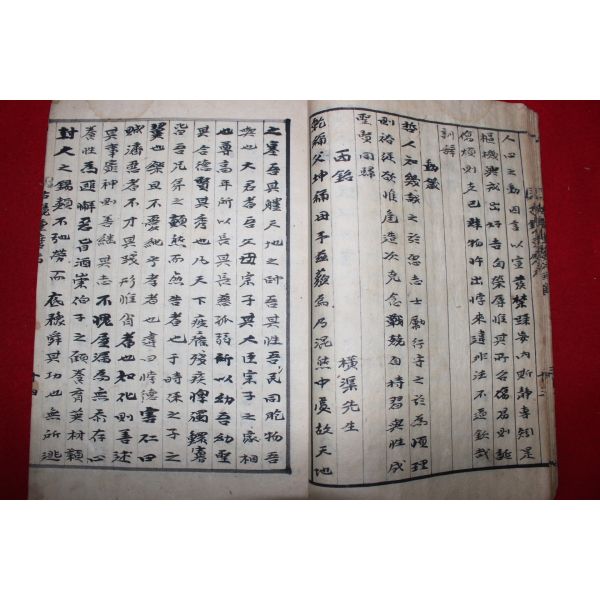 人心之動因言以宣發禁躁妄內斯靜專矧是
樞機興戎出好吉凶榮辱惟其所召傷易則誕
傷煩則支己肆物忤出悖來違非法不道欽哉
訓辭
動箴
哲人知幾誠之於思志士勵行守之於爲順理
則裕從欲惟危造次克念戰兢自持習與性成
聖賢同歸
西銘　橫渠先生
乾稱父坤稱母予茲藐焉乃混然中處故天地
之塞吾其體天地之帥吾其性吾民同胞物吾
與也大君者吾父母宗子其大臣宗子之家相
也尊高年所以長其長慈孤弱所以幼吾幼聖
其合德賢其秀也凡天下疲癃殘疾惸獨鰥寡
皆吾兄弟之顚連而無告者也于時保之子之
翼也樂且不憂純乎孝者也違曰悖德害仁曰
賊濟惡者不才其踐形惟肖者也知化則善述
其事窮神則善繼其志不愧屋漏爲無忝存心
養性爲匪懈惡旨酒崇伯子之顧養育英材潁
封人之錫類不弛勞而底豫舜其功也無所逃